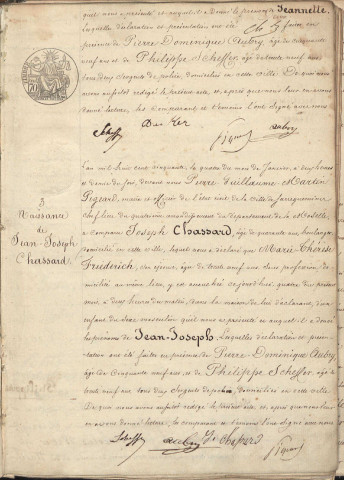 quel nous a présenté et auquel il a donné le prénom de Jeannette.
Laquelle déclaration et présentation ont été faites en
présence de Pierre Dominique Aubry, âgé de cinquante
neuf ans et de Philippe Scheffer, âgé de trente neuf ans
tous deux Sergents de police, domiciliés en cette ville. De quoi nous
avons rédigé le présent acte, et après que nous leur en
avons donné lecture, les comparant et témoins l'ont signé avec nous
Scheff aubry
3
Naissance
de
Jean-Joseph
Chassard.
L'an mil huit cent cinquante, le quatre du mois de Janvier, à deux heures
et demie du soir, devant nous Pierre Guillaume Martin
maire et officier de l'état civil de la ville de Sarreguemines
chef lieu du quatrième arrondissement du département de la Moselle,
a comparu Joseph Chassard, âgé de quarante ans boulanger,
domicilié en cette ville, lequel nous a déclaré que Marie Thérèse
Friederich, son épouse, âgée de trente neuf ans sans profession,
au même lieu, est accouchée cejourd'hui, quatre du présent
mois, à deux heures du matin, dans la maison du déclarant, d'un
enfant du sexe masculin qu'il nous a présenté et auquel il a donné
les prénoms de Jean-Joseph. Lesquelles déclaration et présen-
tation ont été faites en présence de Pierre-Dominique Aubry
âgé de Cinquante neuf ans, et de Philippe Scheffer, âgé de
trente neuf ans tous deux Sergents de police, domiciliés en cette ville.
De quoi nous avons rédigé le présent acte, et après que nous leur
en avons donné lecture, les comparant et témoins l'ont signé avec nous
Scheff aubry Chassard